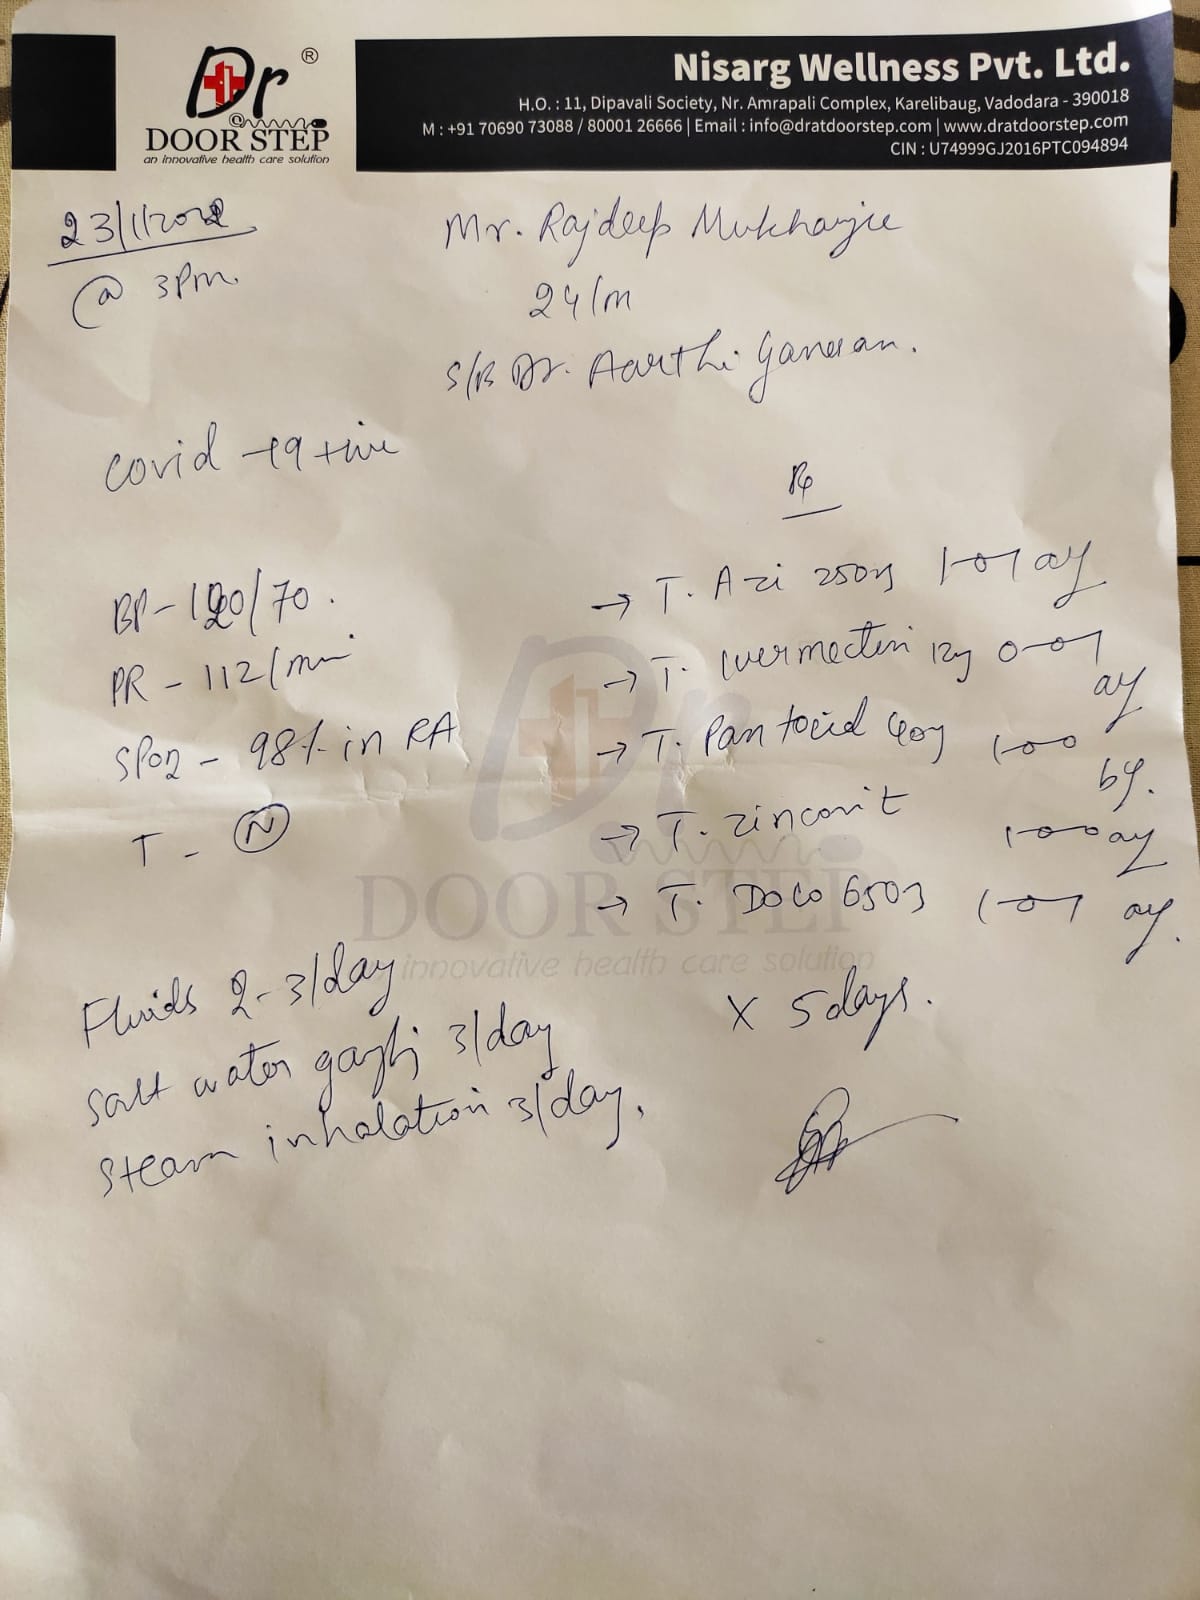 Dr ®
DOOR STEP
an innovative health care solution
Nisarg Wellness Pvt. Ltd.
H.O. : 11, Dipavali Society, Nr. Amrapali Complex, Karelibaug, Vadodara - 390018
M : +91 70690 73088 / 80001 26666 | Email : info@dratdoorstep.com | www.dratdoorstep.com
CIN : U74999GJ2016PTC094894
23/1/2022
@ 3pm.
Mr. Rajdeep Mukharjee
24/m
S/B Dr. Aarthi Ganesan.
Covid -19 +ive
Rp
BP - 120/70.
PR - 112/min
SPO2 - 98% in RA
T - N
→ T. Azi 250mg 1-0-1 af
→ T. Ivermectin 12mg 0-0-1 af
→ T. Pantocid 40mg 1-0-0 bf.
→ T. Zincovit 1-0-0 af
→ T. Dolo 650mg 1-0-1 af.
x 5 days.
Dr.
DOOR STEP
innovative health care solution
Fluids 2-3/day
Salt water 3/day
Steam inhalation 3/day.